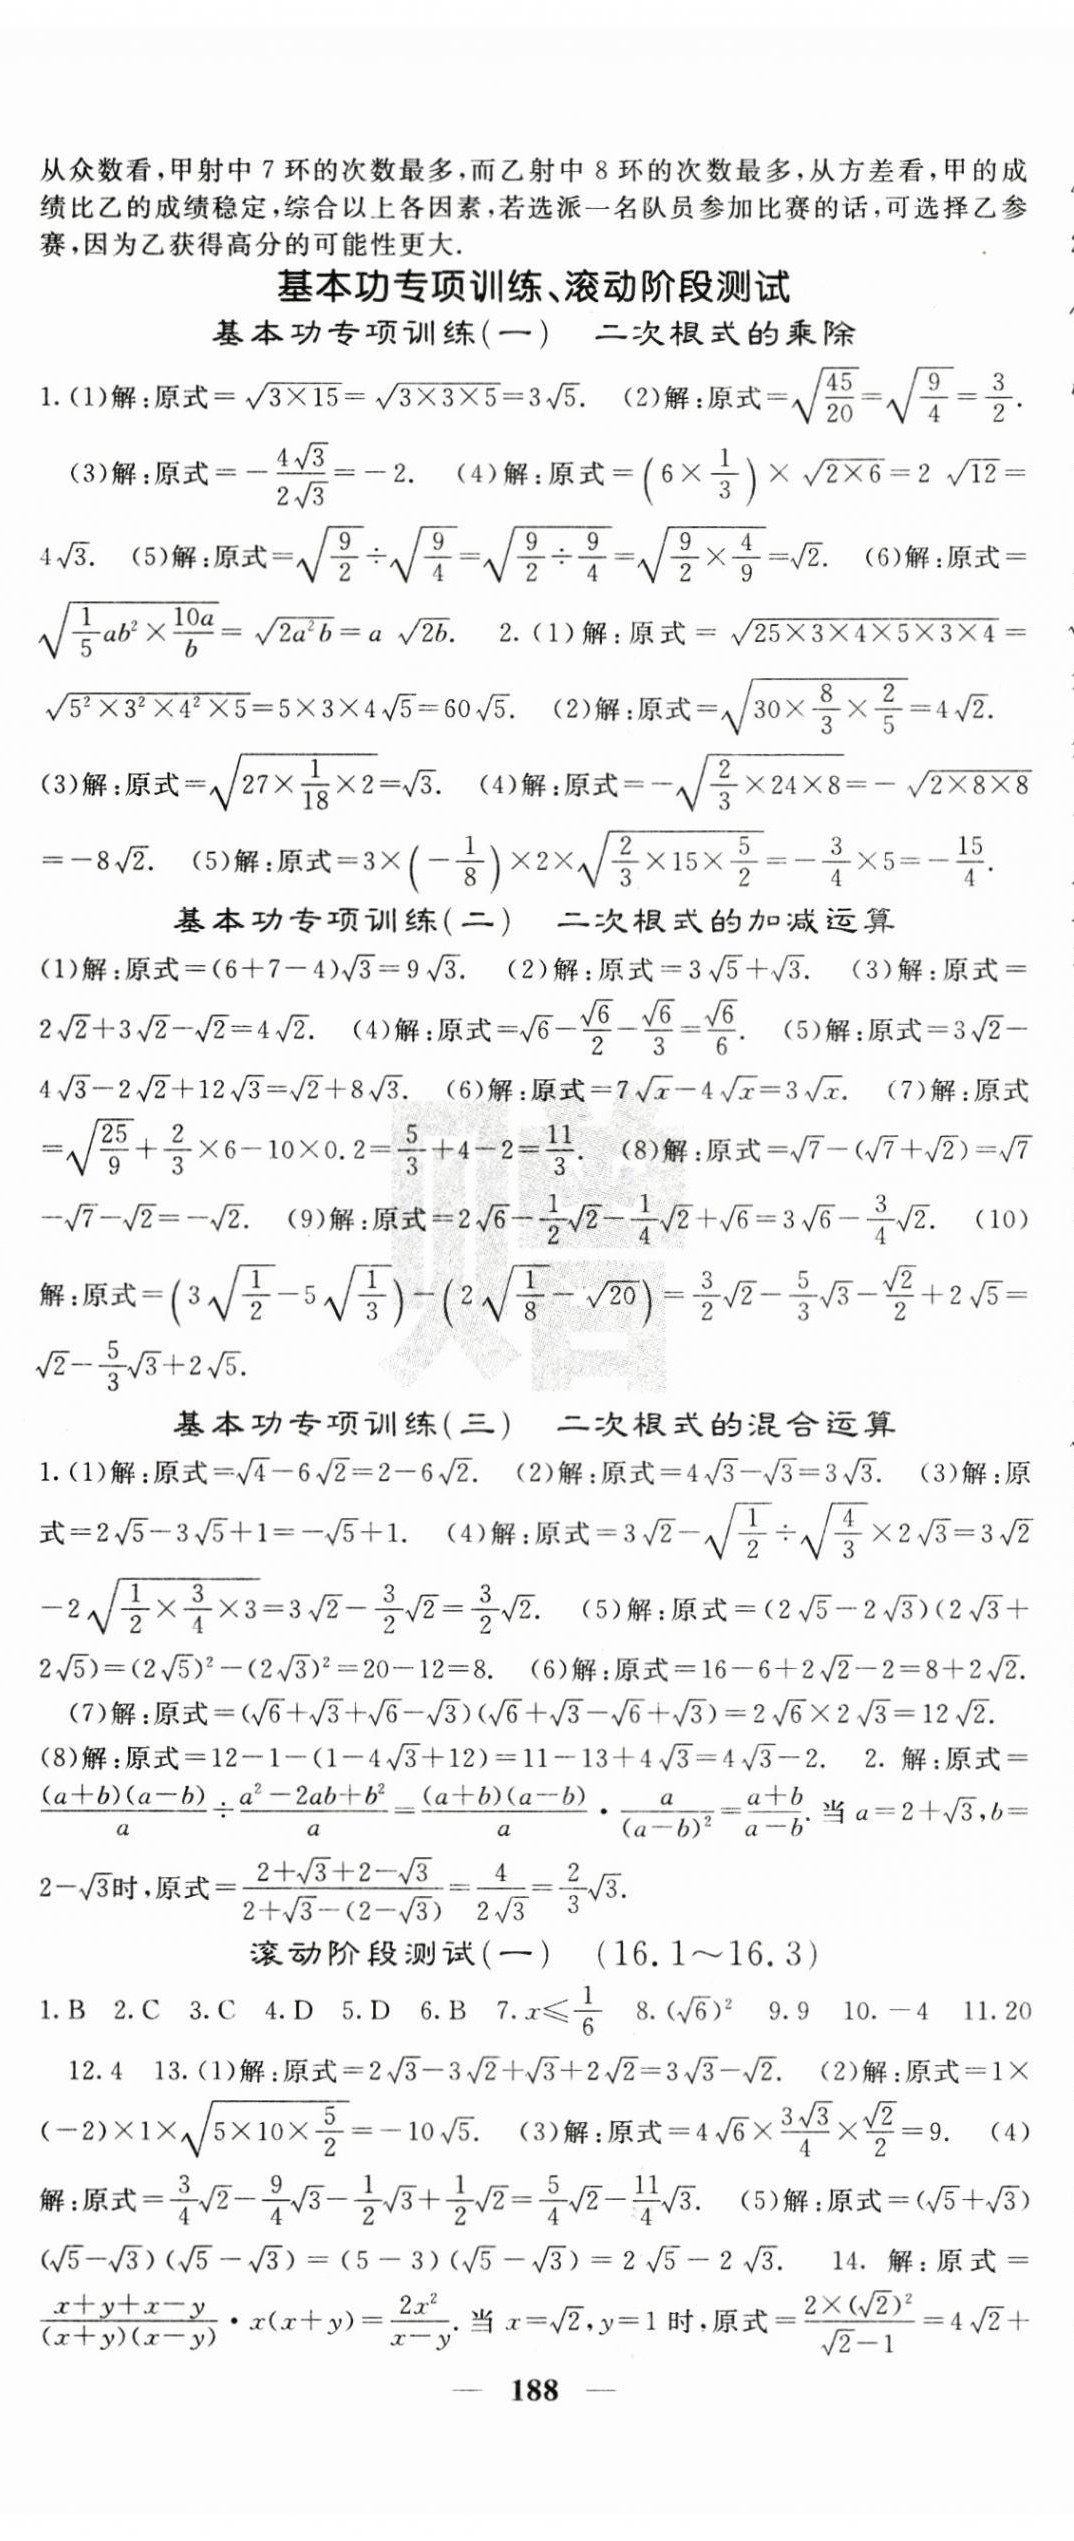 从众数看,甲射中 7 环的次数最多,而乙射中 8 环的次数最多,从方差看,甲的成
绩比乙的成绩稳定,综合以上各因素,若选派一名队员参加比赛的话,可选择乙参
赛,因为乙获得高分的可能性更大.
基本功专项训练、滚动阶段测试
基本功专项训练(一) 二次根式的乘除
1. (1)解:原式=√(3×15)=√(3×3×5)=3√5. (2)解:原式=√(45/20)=√(9/4)=3/2.
(3)解:原式=-4√3/2√3=-2. (4)解:原式=(6×1/3)×√(2×6)=2√12=
4√3. (5)解:原式=√(9/2)÷√(9/4)=√(9/2÷9/4)=√(9/2×4/9)=√2. (6)解:原式=
√(1/5ab²×10a/b)=√(2a²b)=a√(2b). 2. (1)解:原式=√(25×3×4×5×3×4)=
√(5²×3²×4²×5)=5×3×4√5=60√5. (2)解:原式=√(30×8/3×2/5)=4√2.
(3)解:原式=√(27×1/18×2)=√3. (4)解:原式=-√(2/3×24×8)=-√(2×8×8)
=-8√2. (5)解:原式=3×(-1/8)×2×√(2/3×15×5/2)=-3/4×5=-15/4.
基本功专项训练(二) 二次根式的加减运算
(1)解:原式=(6+7-4)√3=9√3. (2)解:原式=3√5+√3. (3)解:原式=
2√2+3√2-√2=4√2. (4)解:原式=√6-√6/2-√6/3=√6/6. (5)解:原式=3√2-
4√3-2√2+12√3=√2+8√3. (6)解:原式=7√x-4√x=3√x. (7)解:原式
=√(25/9)+2/3×6-10×0.2=5/3+4-2=11/3. (8)解:原式=√7-(√7+√2)=√7
-√7-√2=-√2. (9)解:原式=2√6-1/2√2-1/4√2+√6=3√6-3/4√2. (10)
解:原式=(3√(1/2)-5√(1/3))-(2√(1/8)-√20)=3/2√2-5/3√3-√2/2+2√5=
√2-5/3√3+2√5.
基本功专项训练(三) 二次根式的混合运算
1. (1)解:原式=√4-6√2=2-6√2. (2)解:原式=4√3-√3=3√3. (3)解:原
式=2√5-3√5+1=-√5+1. (4)解:原式=3√2-√(1/2)÷√(4/3)×2√3=3√2
-2√(1/2×3/4×3)=3√2-3/2√2=3/2√2. (5)解:原式=(2√5-2√3)(2√3+
2√5)=(2√5)²-(2√3)²=20-12=8. (6)解:原式=16-6+2√2-2=8+2√2.
(7)解:原式=(√6+√3+√6-√3)(√6+√3-√6+√3)=2√6×2√3=12√2.
(8)解:原式=12-1-(1-4√3+12)=11-13+4√3=4√3-2. 2. 解:原式=
(a+b)(a-b)/a÷(a²-2ab+b²)/a=(a+b)(a-b)/a·a/(a-b)²=(a+b)/(a-b). 当 a=2+√3,b=
2-√3时,原式=(2+√3+2-√3)/(2+√3-(2-√3))=4/2√3=2/3√3.
滚动阶段测试(一) (16.1～16.3)
1. B 2. C 3. C 4. D 5. D 6. B 7. x≤1/6 8. (√6)² 9. 9 10. -4 11. 20
12. 4 13. (1)解:原式=2√3-3√2+√3+2√2=3√3-√2. (2)解:原式=1×
(-2)×1×√(5×10×5/2)=-10√5. (3)解:原式=4√6×3√3/4×√2/2=9. (4)
解:原式=3/4√2-9/4√3-1/2√3+1/2√2=5/4√2-11/4√3. (5)解:原式=(√5+√3)
(√5-√3)(√5-√3)=(5-3)(√5-√3)=2√5-2√3. 14. 解:原式=
(x+y+x-y)/((x+y)(x-y))·x(x+y)=2x²/(x-y). 当 x=√2,y=1 时,原式=2×(√2)²/(√2-1)=4√2+
— 188 —